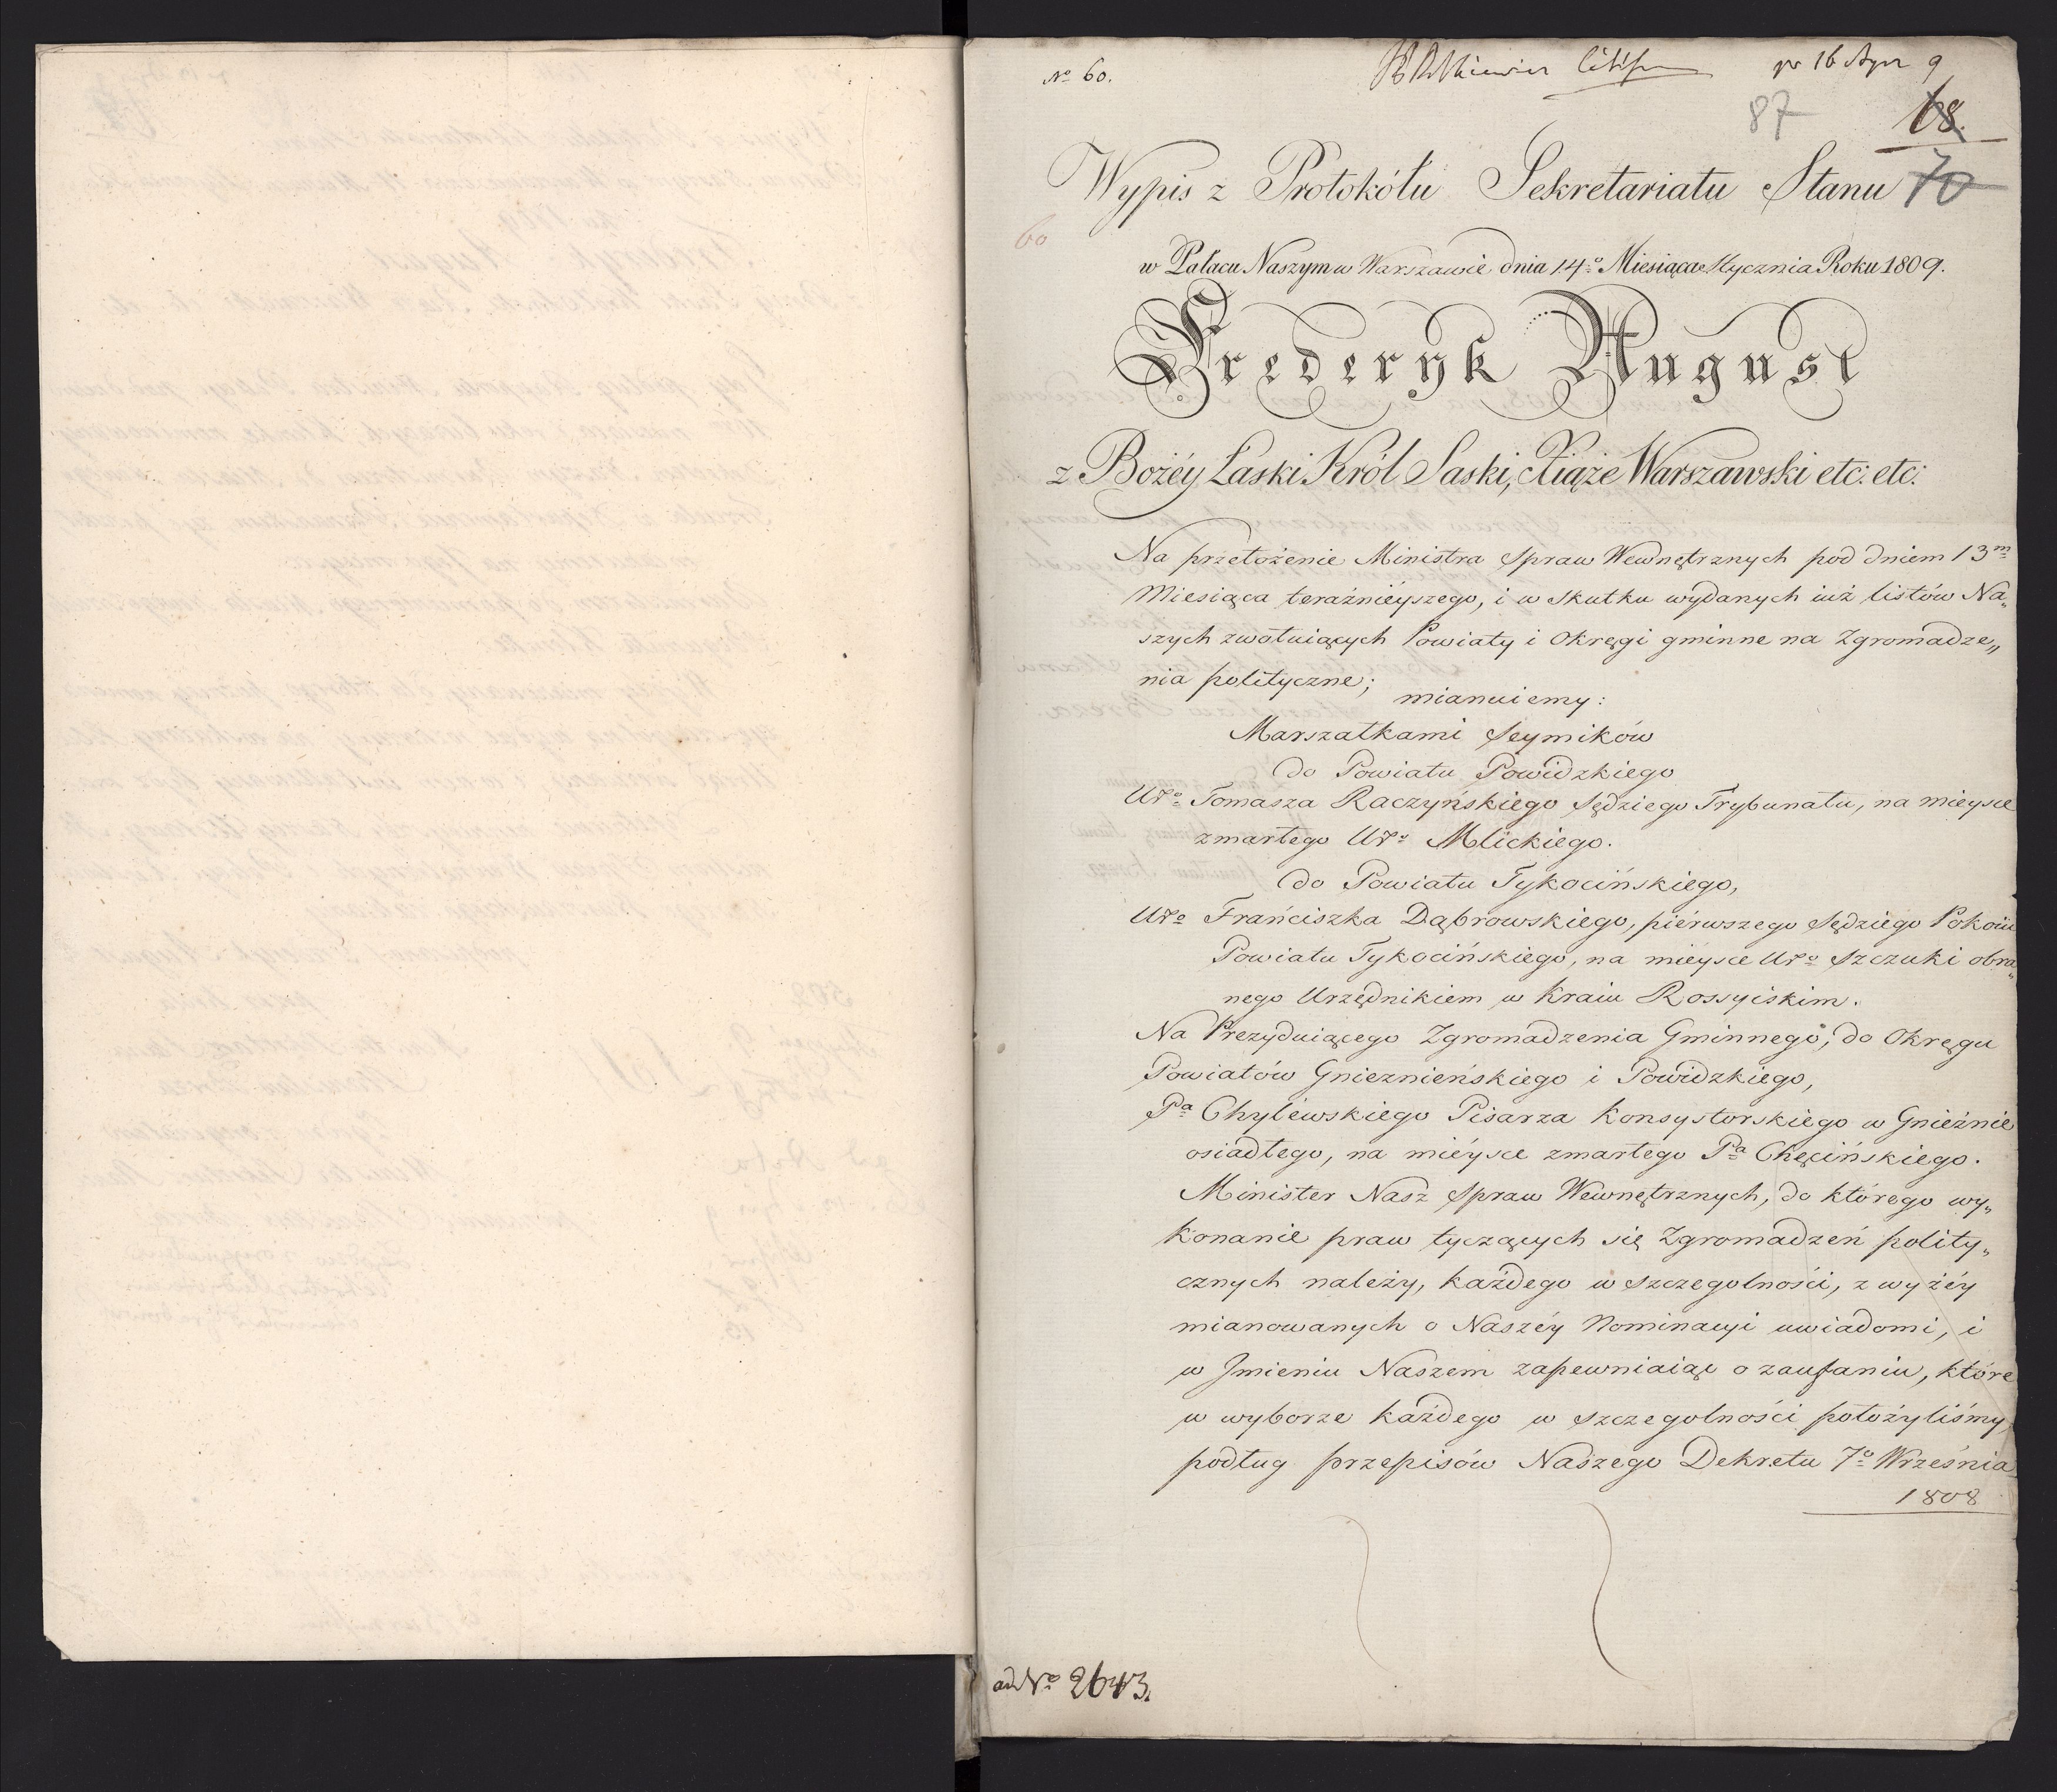 No 60.
pr 16
87
68.
70
Wypis z Protokółu Sekretariatu Stanu
60
w Pałacu Naszym w Warszawie dnia 14o Miesiąca Stycznia Roku 1809.
Frederyk August
z Bożéy Łaski Król Saski, Xiąże Warszawski etc: etc:
Na przełożenie Ministra Spraw Wewnętrznych pod dniem 13m
Miesiąca teraźnieyszego, i w skutku wydanych iuż listów Na„
szych zwołuiących Powiaty i Okręgi gminne na Zgromadze„
nia polityczne;
mianuiemy:
Marszałkami Seymików
do Powiatu Powidzkiego
Uro Tomasza Raczyńskiego Sędziego Trybunału, na mieysce
zmarłego Uro Mlickiego.
do Powiatu Tykocińskiego,
Uro Frańciszka Dąbrowskiego, piérwszego Sędziego Pokoiu
Powiatu Tykocińskiego, na miéysce Uro Szczuki obra„
nego Urzędnikiem w Kraiu Rossyiskim.
Na Prezyduiącego Zgromadzenia Gminnego, do Okręgu
Powiatów Gnieznieńskiego i Powidzkiego,
Pa Chylewskiego Pisarza Konsystorskiego w Gnieźnie
osiadłego, na miéysce zmarłego Pa Chęcińskiego.
Minister Nasz Spraw Wewnętrznych, do którego wy„
konanie praw tyczących się Zgromadzeń polity„
cznych należy, każdego w szczegolności, z wyżéy
mianowanych o Naszéy Nominacyi uwiadomi, i
w Jmieniu Naszem zapewniaiąc o zaufaniu, które
w wyborze każdego w szczegolności położyliśmy,
podług przepisów Naszego Dekretu 7o Września
1808
ad No 2643.